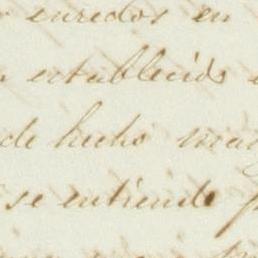 enredos en
establecido
de hecho
se entiende